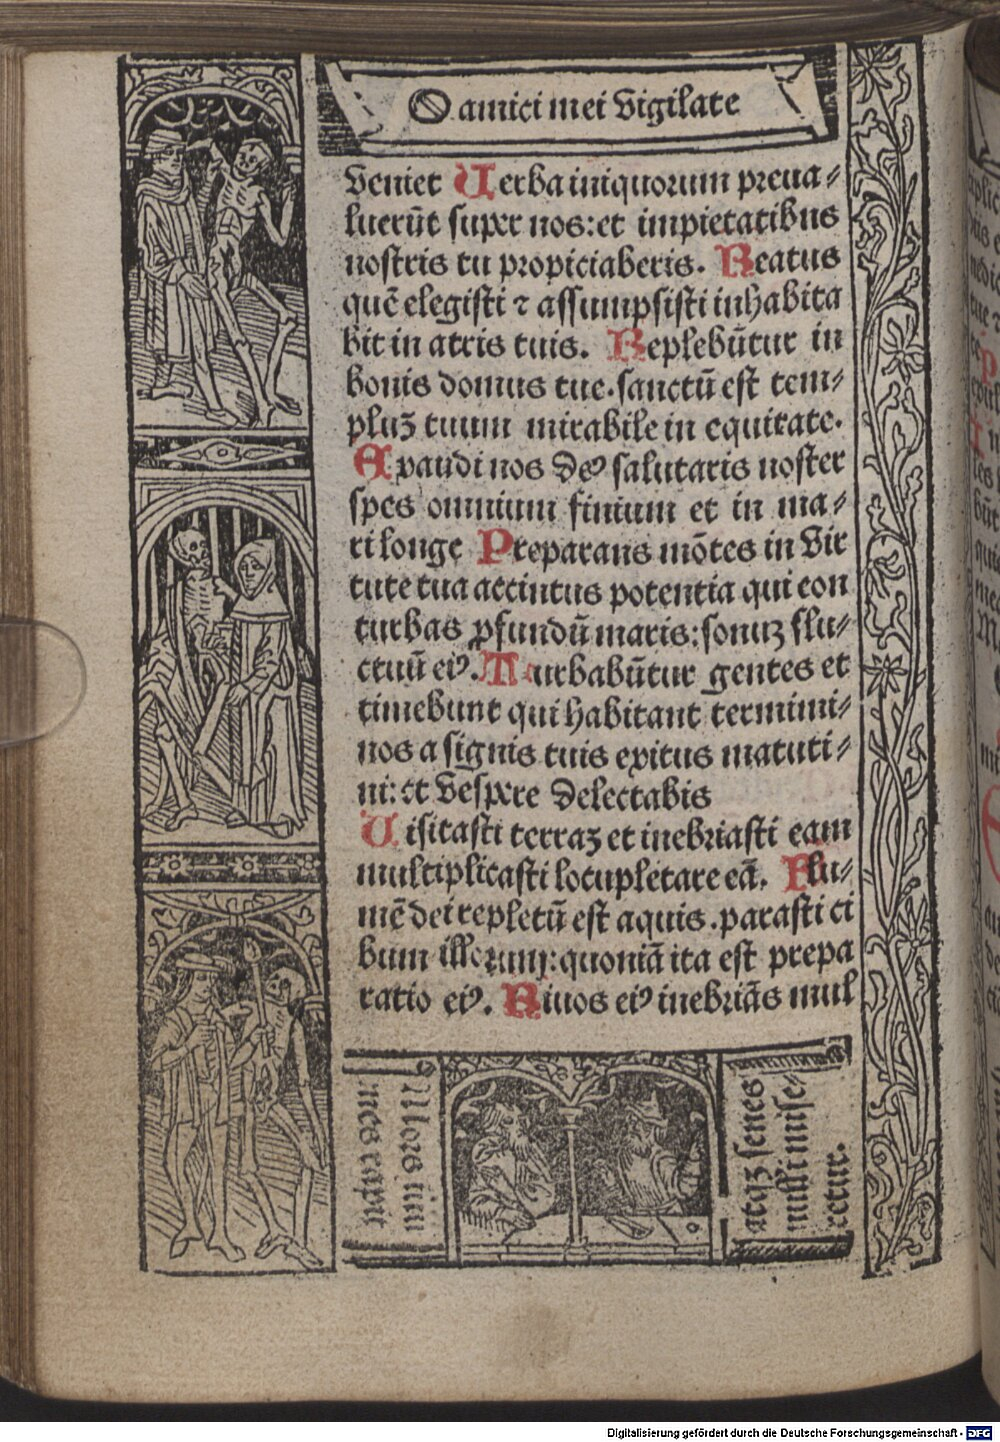 O amici mei vigilate
veniet Verba iniquorum preua⸗
luerūt super nos: et impietatibus
nostris tu propiciaberis. Beatus
quē elegisti ⁊ assumpsisti inhabita
bit in atris tuis. Replebūtur in
bonis domus tue. sanctū est tem⸗
pluꝫ tuum mirabile in equitate.
Exaudi nos deꝰ salutaris noster
spes omnium finium et in ma⸗
ri longe Preparans mōtes in vir
tute tua accintus potentia qui con
turbas ꝓfundū maris: sonuꝫ flu⸗
ctuū eiꝰ. Turbabūtur gentes et
timebunt qui habitant termimi⸗
nos a signis tuis exitus matuti⸗
ni: et vespere delectabis
Visitasti terraꝫ et inebriasti eam
multiplicasti locupletare eā. Flu⸗
mē dei repletū est aquis. parasti ci
bum illorum: quoniā ita est prepa
ratio eiꝰ. Riuos eiꝰ inebriās mul
Mors iuu
nes rapit
atqꝫ senes
nulli mise⸗
retur.
Digitalisierung gefördert durch die Deutsche Forschungsgemeinschaft - DFG